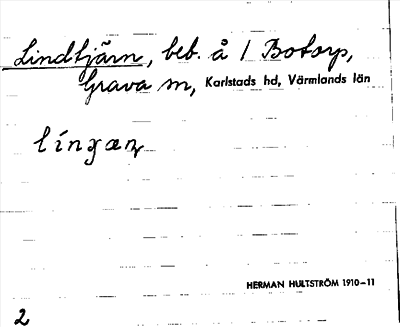 Lindtjärn, beb. å 1 Botorp,
Grava sn, Karlstads hd, Värmlands län
HERMAN HULTSTRÖM 1910–11
2